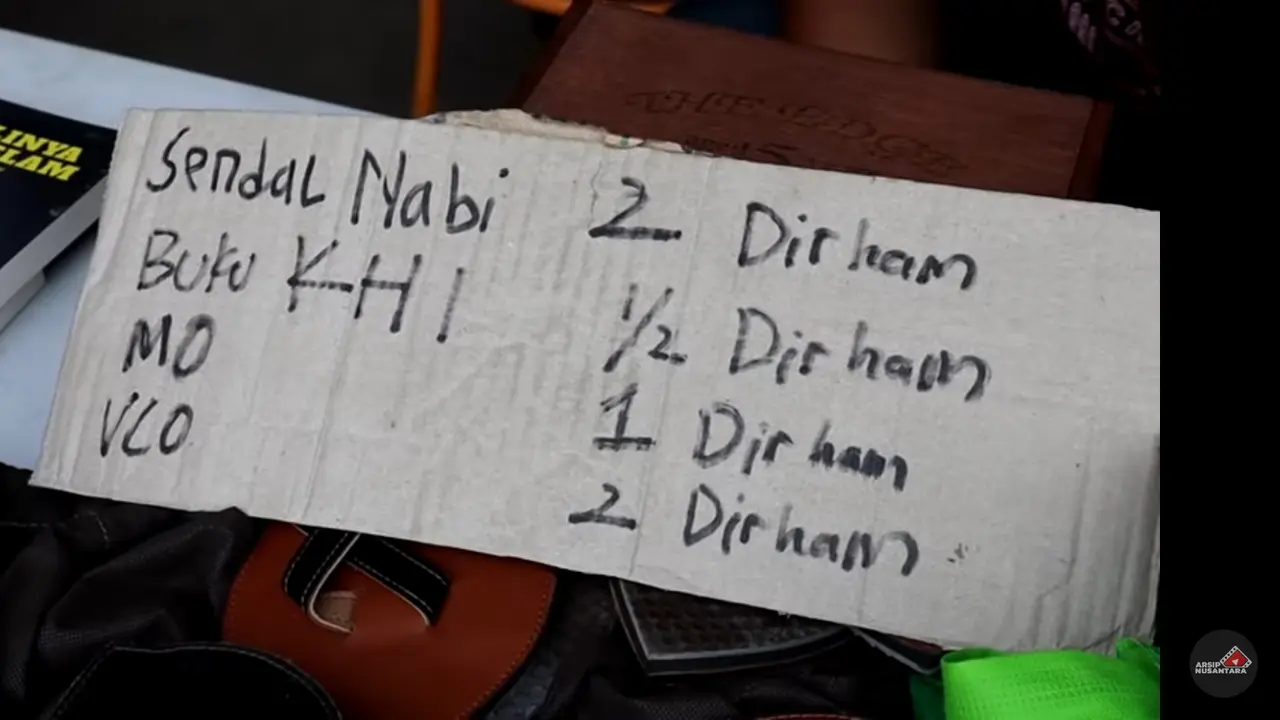 Sendal Nabi 2 Dirham
Buku KHI 1/2 Dirham
MO 1 Dirham
VCO 2 Dirham
LINYA
ELAM
THE EDGE
ARSIP
NUSANTARA